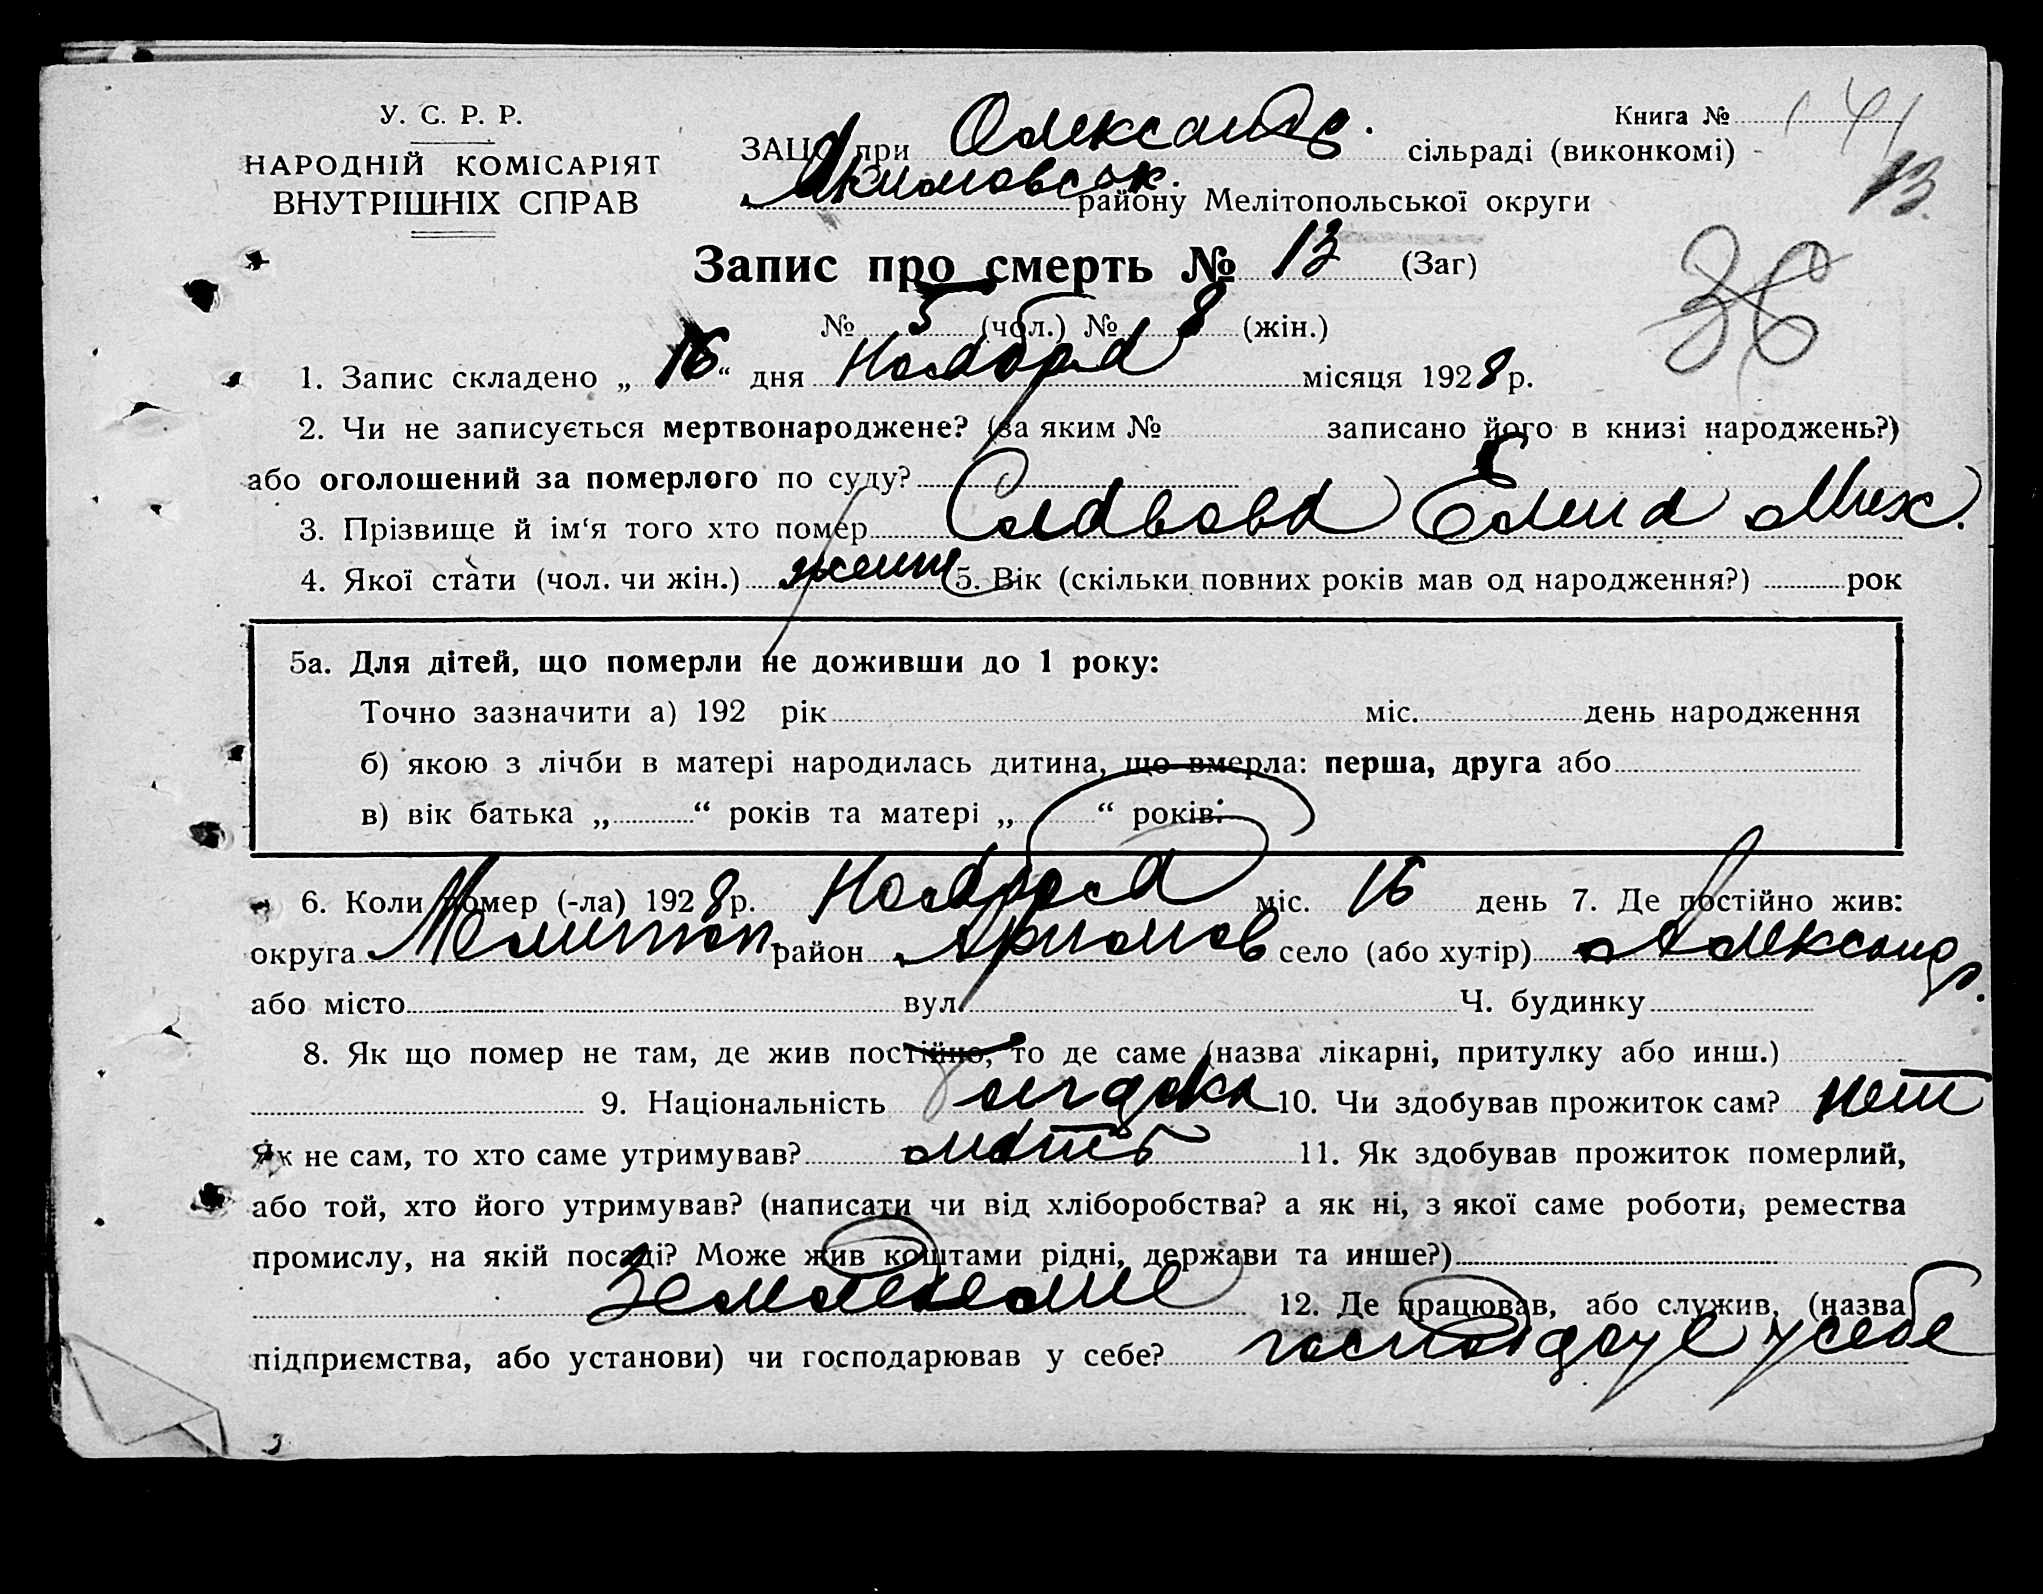 У. С. Р. Р.
НАРОДНІЙ КОМІСАРІЯТ
ВНУТРІШНІХ СПРАВ
Книга №
ЗАЦС при Олександр. сільраді (виконкомі)
Якимовськ. району Мелітопольської округи
13.
Запис про смерть № 13 (Заг)
36
№ 5 (чол.) № 8 (жін.)
1. Запис складено „16“ дня Ноября місяця 1928 р.
2. Чи не записується мертвонароджене? (за яким № записано його в книзі народжень?)
або оголошений за померлого по суду?
3. Прізвище й ім‘я того хто помер Елена Мих.
4. Якої стати (чол. чи жін.) женш 5. Вік (скільки повних років мав од народження?) рок
5а. Для дітей, що померли не доживши до 1 року:
Точно зазначити а) 192 рік міс. день народження
б) якою з лічби в матері народилась дитина, що вмерла: перша, друга або
в) вік батька „ “ років та матері „ “ років.
6. Коли помер (-ла) 1928 р. Ноября міс. 16 день 7. Де постійно жив:
округа Мелитоп. район Акимов село (або хутір) Александр.
або місто вул. Ч. будинку
8. Як що помер не там, де жив постійно, то де саме (назва лікарні, притулку або инш.)
9. Національність 10. Чи здобував прожиток сам? нет
Як не сам, то хто саме утримував? мать 11. Як здобував прожиток померлий,
або той, хто його утримував? (написати чи від хліборобства? а як ні, з якої саме роботи, ремества
промислу, на якій посаді? Може жив коштами рідні, держави та инше?)
12. Де працював, або служив, (назва
підприємства, або установи) чи господарював у себе? у себе